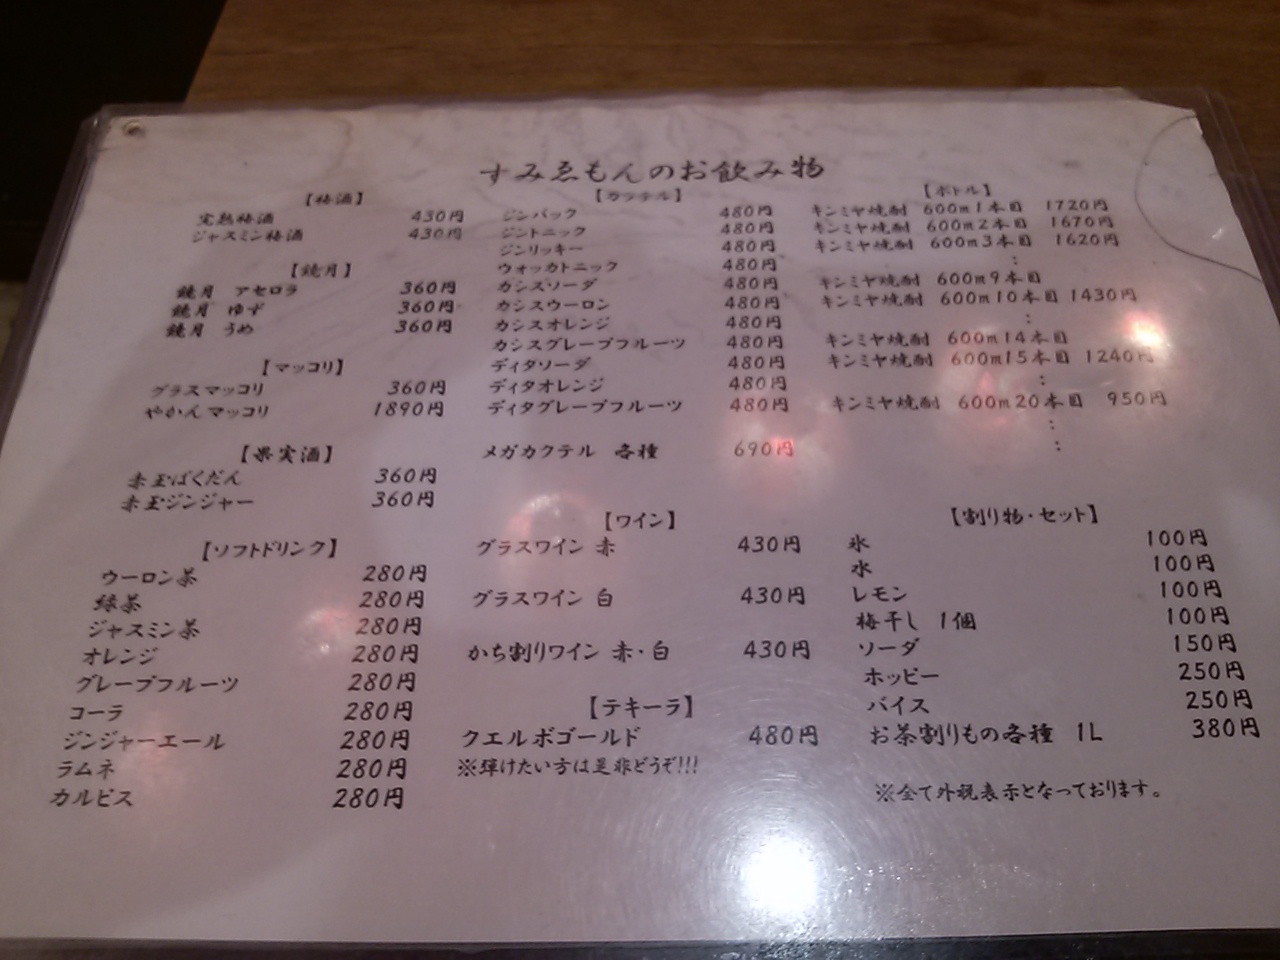 すみゑもんのお飲み物
【梅酒】
完熟梅酒 430円
ジャスミン梅酒 430円
【鏡月】
鏡月 アセロラ 360円
鏡月 ゆず 360円
鏡月 うめ 360円
【マッコリ】
グラスマッコリ 360円
やかんマッコリ 1890円
【果実酒】
赤玉ばくだん 360円
赤玉ジンジャー 360円
【ソフトドリンク】
ウーロン茶 280円
緑茶 280円
ジャスミン茶 280円
オレンジ 280円
グレープフルーツ 280円
コーラ 280円
ジンジャーエール 280円
ラムネ 280円
カルピス 280円
【カクテル】
ジンバック 480円
ジントニック 480円
ジンリッキー 480円
ウォッカトニック 480円
カシスソーダ 480円
カシスウーロン 480円
カシスオレンジ 480円
カシスグレープフルーツ 480円
ディタソーダ 480円
ディタオレンジ 480円
ディタグレープフルーツ 480円
メガカクテル 各種 690円
【ワイン】
グラスワイン 赤 430円
グラスワイン 白 430円
かち割りワイン 赤・白 430円
【テキーラ】
クエルボゴールド 480円
※弾けたい方は是非どうぞ!!!
【ボトル】
キンミヤ焼酎 600m1本目 1720円
キンミヤ焼酎 600m2本目 1670円
キンミヤ焼酎 600m3本目 1620円
:
キンミヤ焼酎 600m9本目
キンミヤ焼酎 600m10本目 1430円
:
キンミヤ焼酎 600m14本目
キンミヤ焼酎 600m15本目 1240円
:
キンミヤ焼酎 600m20本目 950円
:
:
【割り物・セット】
氷 100円
水 100円
レモン 100円
梅干し 1個 100円
ソーダ 150円
ホッピー 250円
バイス 250円
お茶割りもの各種 1L 380円
※全て外税表示となっております。